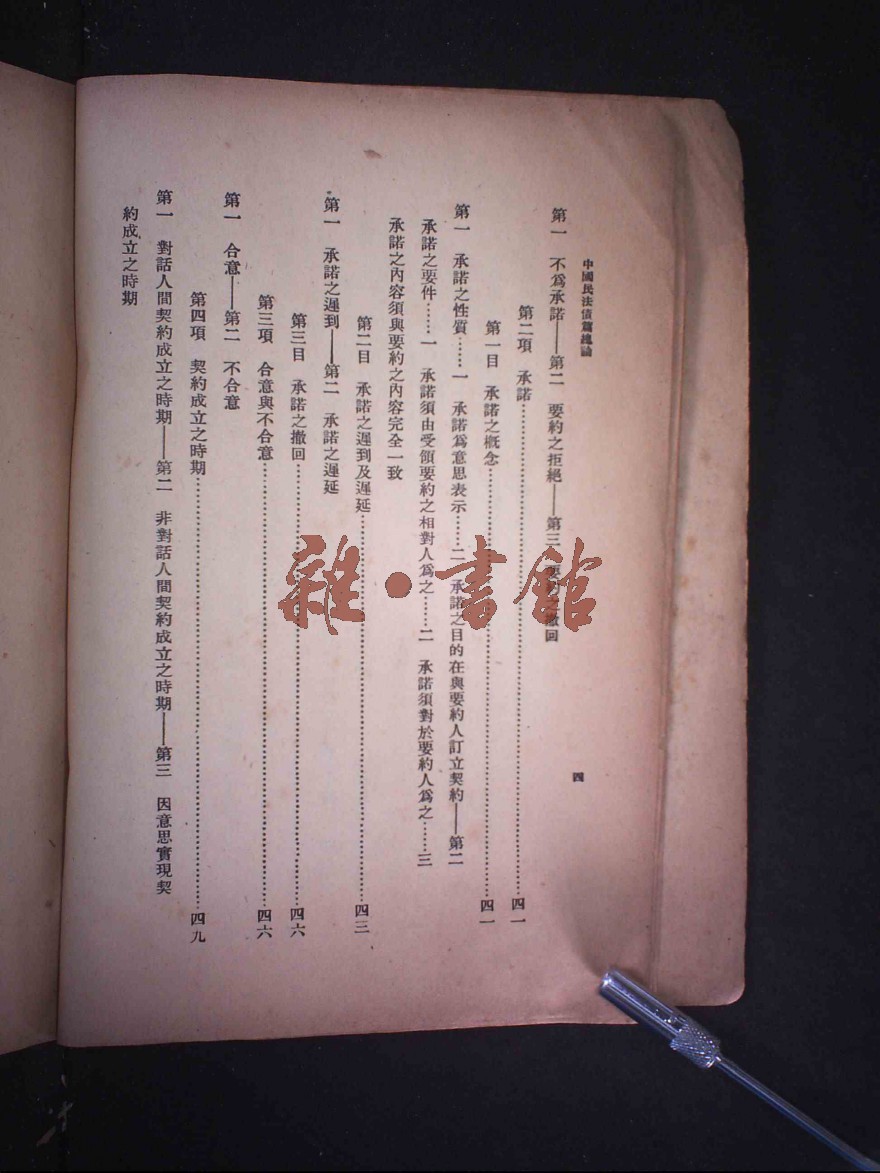 中國民法債篇總論
四
第一　不爲承諾——第二　要約之拒絕——第三　要約之撤回
第二項　承諾……四一
第一目　承諾之概念……四一
第一　承諾之性質……一　承諾爲意思表示……二　承諾之目的在與要約人訂立契約——第二
承諾之要件……一　承諾須由受領要約之相對人爲之……二　承諾須對於要約人爲之……三
承諾之內容須與要約之內容完全一致
第二目　承諾之遲到及遲延……四三
第一　承諾之遲到——第二　承諾之遲延
第三目　承諾之撤回……四六
第三項　合意與不合意……四六
第一　合意——第二　不合意
第四項　契約成立之時期……四九
第一　對話人間契約成立之時期——第二　非對話人間契約成立之時期——第三　因意思實現契
約成立之時期
雜·書館